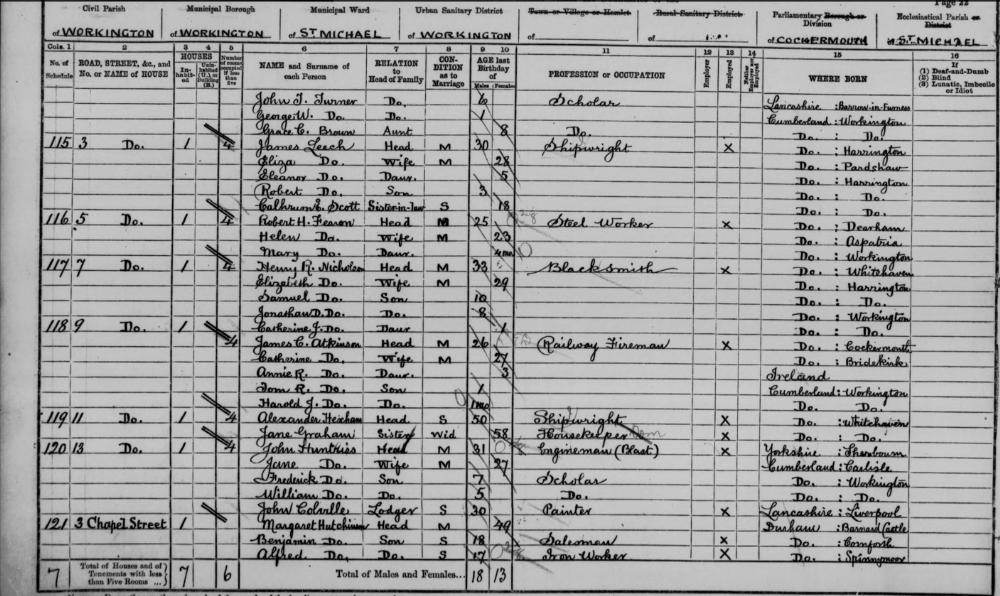 Page 22
Civil Parish Municipal Borough Municipal Ward Urban Sanitary District Town or Village or Hamlet Rural Sanitary District Parliamentary Borough or Division Ecclesiastical Parish or District
of WORKINGTON of WORKINGTON of ST MICHAEL of WORKINGTON of of of COCKERMOUTH of ST MICHAEL
Cols. 1 2 3 4 5 6 7 8 9 10 11 12 13 14 15 16
No. of Schedule ROAD, STREET, &c., and No. or NAME of HOUSE HOUSES Inhabited Uninhabited (U.) or Building (B.) Number of rooms occupied if less than five NAME and Surname of each Person RELATION to Head of Family CONDITION as to Marriage AGE last Birthday of Males Females PROFESSION or OCCUPATION Employer Employed Neither Employer nor Employed WHERE BORN If (1) Deaf-and-Dumb (2) Blind (3) Lunatic, Imbecile or Idiot
John T. Turner Do. 6 Scholar Lancashire : Barrow-in-Furness
George W. Do. Do. 1 Cumberland : Workington
Grace C. Brown Aunt 8 Do. Do. : Do.
115 3 Do. 1 4 James Leech Head M 30 Shipwright X Do. : Harrington
Eliza Do. Wife M 28 Do. : Pardshaw
Eleanor Do. Daur. 5 Do. : Harrington
Robert Do. Son 3 Do. : Do.
E. Scott Sister-in-law S 18 Do. : Do.
116 5 Do. 1 4 Robert H. Fearon Head M 25 Steel Worker X Do. : Dearham
Helen Do. Wife M 23 Do. : Aspatria
Mary Do. Daur. 4 mo. Do. : Workington
117 7 Do. 1 4 Henry R. Nicholson Head M 33 Blacksmith X Do. : Whitehaven
Elizabeth Do. Wife M 29 Do. : Harrington
Samuel Do. Son 10 Do. : Do.
Jonathan D. Do. Do. 8 Do. : Workington
Catherine J. Do. Daur 1 Do. : Do.
118 9 Do. 1 4 James C. Atkinson Head M 26 Railway Fireman X Do. : Cockermouth
Catherine Do. Wife M 27 Do. : Bridekirk
Annie R. Do. Daur. 3 Ireland
Tom R. Do. Son 1 Cumberland : Workington
Harold J. Do. Do. 1 mo Do. : Do.
119 11 Do. 1 4 Alexander Hexham Head S 50 Shipwright X Do. : Whitehaven
Jane Graham Sister Wid 58 Housekeeper Dom X Do. : Do.
120 13 Do. 1 4 John Head M 31 Engineman (Blast) X Yorkshire : Sherbourn
Jane Do. Wife M 27 Cumberland : Carlisle
Frederick Do. Son 7 Scholar Do. : Workington
William Do. Do. 5 Do. Do. : Do.
John Colville Lodger S 30 Painter X Lancashire : Liverpool
121 3 Chapel Street 1 Margaret Hutchinson Head M 49 Durham : Barnard Castle
Benjamin Do. Son S 18 Salesman X Do. : Cornforth
Alfred Do. Do. S 17 Iron Worker X Do. : Spennymoor
7 Total of Houses and of Tenements with less than Five Rooms ... 7 6 Total of Males and Females... 18 13